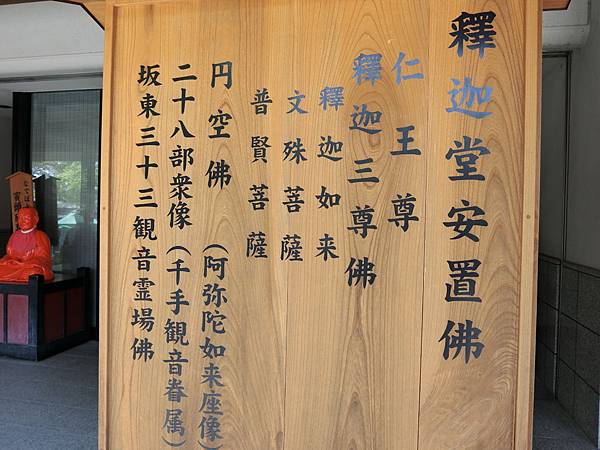 釋迦堂安置佛
仁王尊
釋迦三尊佛
釋迦如来
文殊菩薩
普賢菩薩
円空佛(阿弥陀如来座像)
二十八部衆像(千手観音眷属)
坂東三十三観音霊場佛